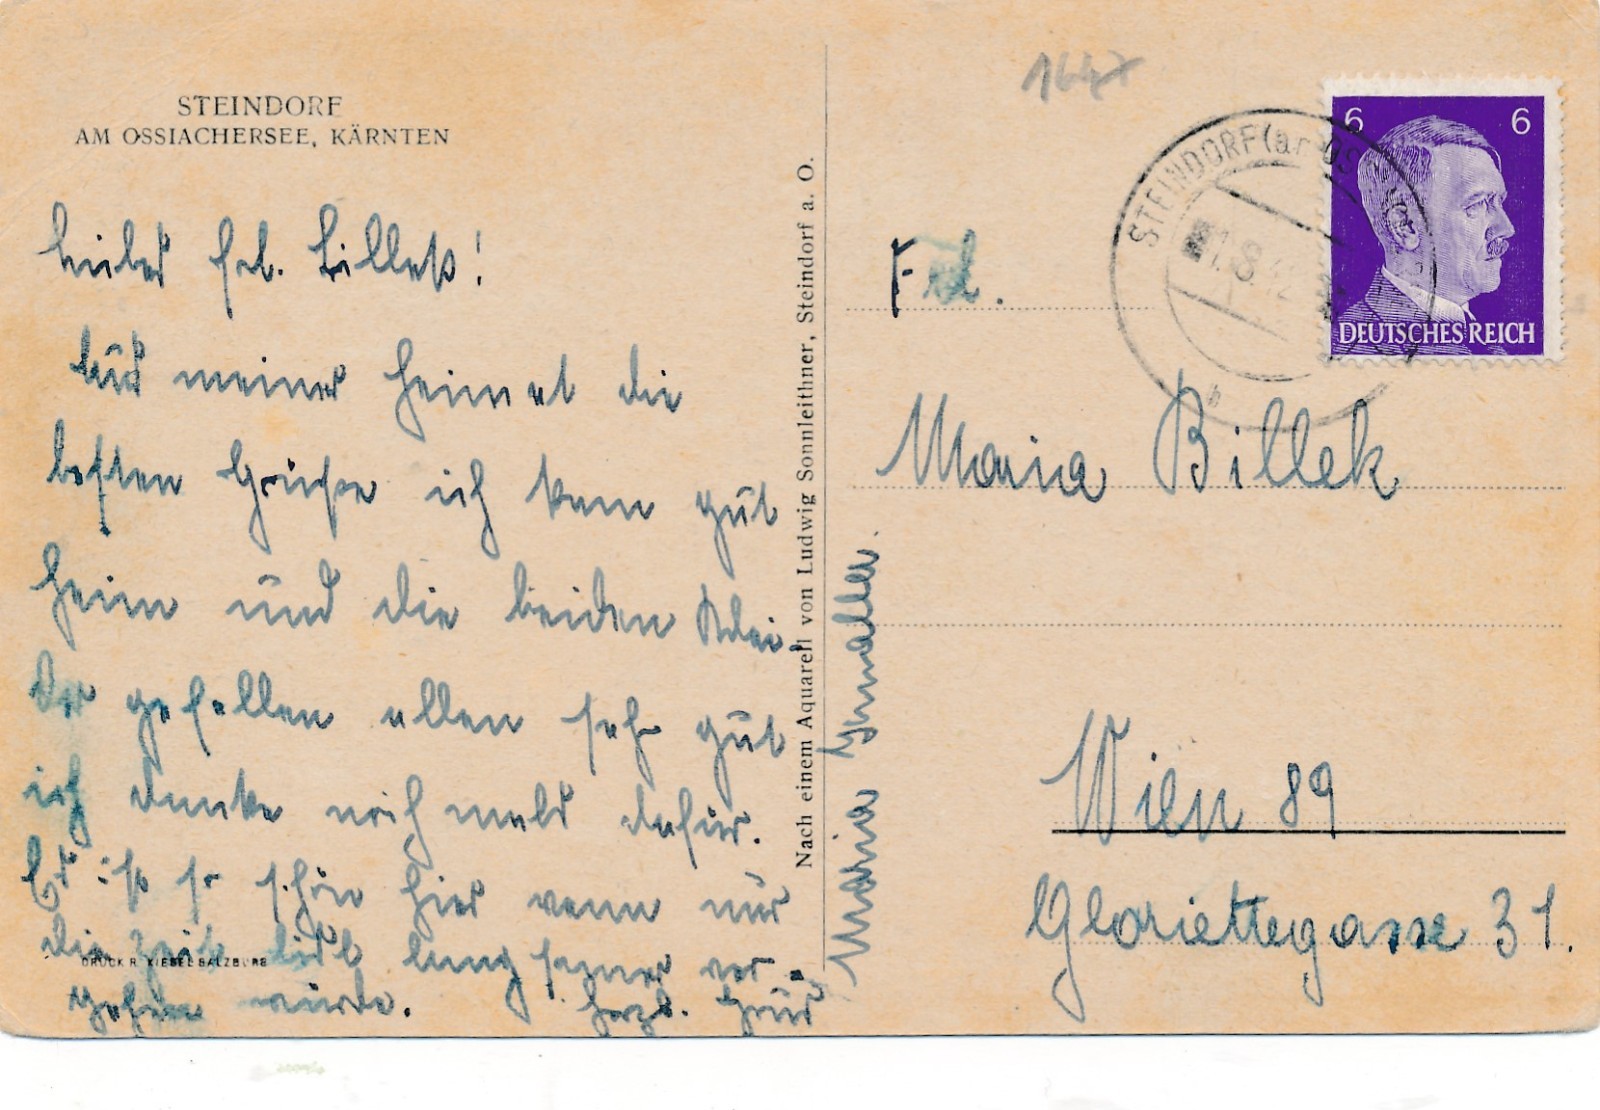 STEINDORF
AM OSSIACHERSEE, KÄRNTEN
Liebes Frl. Billek!
Aus meiner Heimat die
besten Grüße ich kam gut
heim und die beiden Klei-
der gefallen allen sehr gut
ich danke nochmals dafür.
Es ist so schön hier wenn nur
die Zeit langsamer ver-
gehen würde. Herzl. Grüß
DRUCK R. KIESEL SALZBURG
Nach einem Aquarell von Ludwig Sonnleithner, Steindorf a. O.
Maria
1647
STEINDORF (a
1.8.42
b
6 6
DEUTSCHES REICH
Frl.
Maria Billek
Wien 89
Gloriettegasse 31.